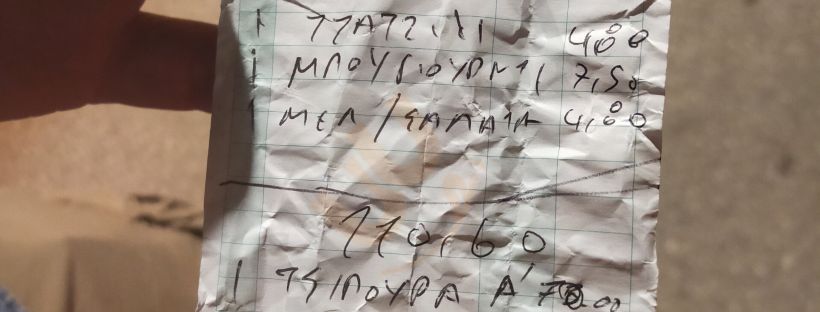 1 ΤΖΑΤΖΙΚΙ 4,00
1 ΜΠΟΥΓΙΟΥΡΝΤΙ 7,50
1 ΜΕΛ/ΣΑΛΑΤΑ 4,00
110,60
1 ΤΣΙΠΟΥΡΑ Α' 70.00